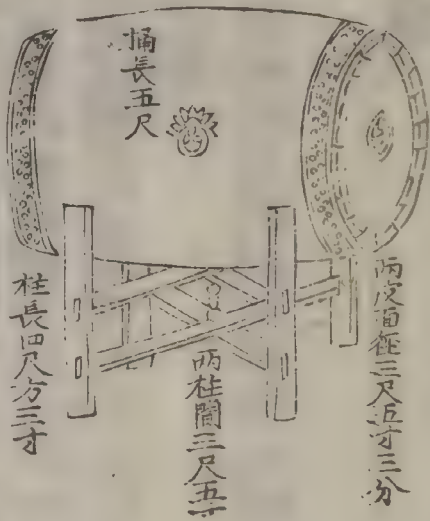 兩皮面徑三尺五寸三分
桶長五尺
兩柱間三尺五寸
柱長四尺方三寸